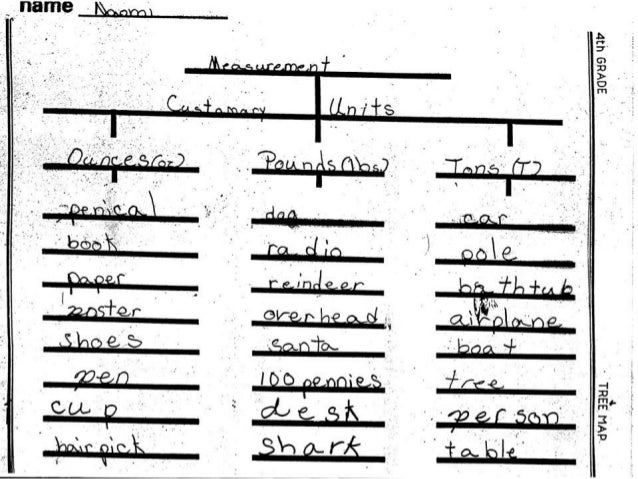 name Naomi
Measurement
Customary Units
Ounces(oz) Pounds(lbs) Tons (T)
penical dog car
book radio pole
paper reindeer bathtub
poster overhead airplane
shoes santa boat
pen 100 pennies tree
cup desk person
hair pick shark table
4th GRADE
TREE MAP